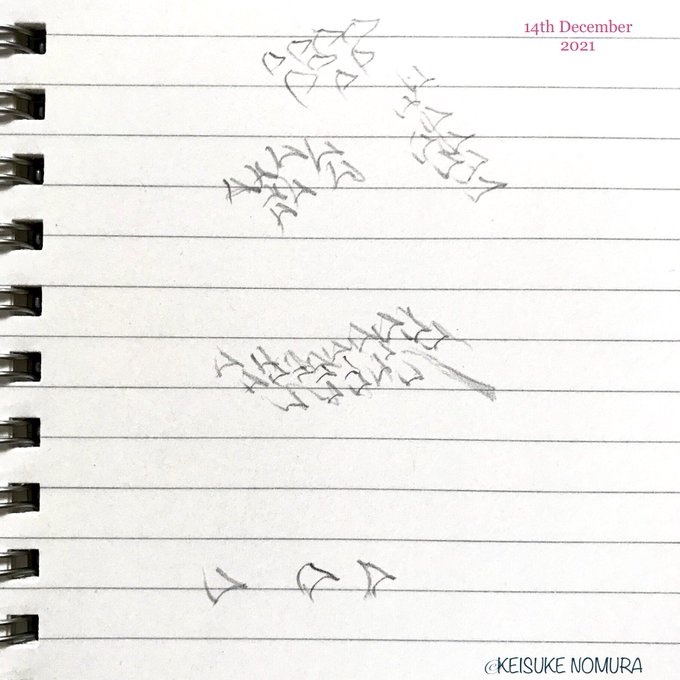 14th December
2021
@KEISUKE NOMURA